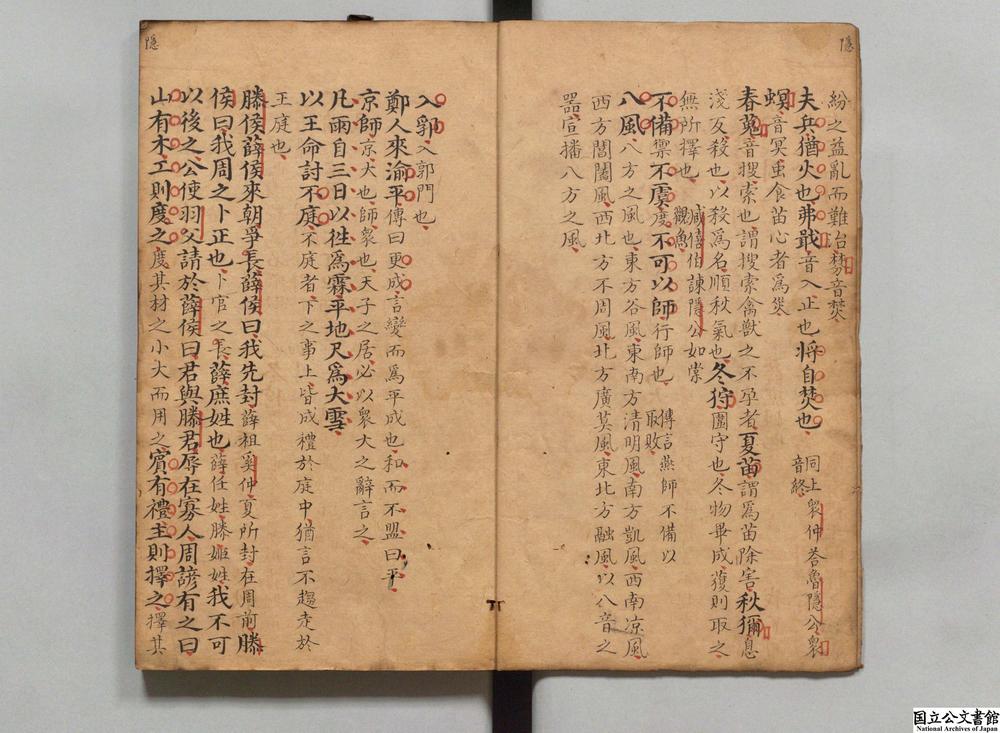 隠
紛之益亂而難治棼音焚
夫兵猶火也弗戢音入正也將自焚也同上衆仲荅魯隱公衆音終
螟音冥虫食苗心者爲災
春蒐音搜索也謂搜索禽獸之不孕者夏苗謂爲苗除害秋獮息
淺反殺也以殺爲名順秋氣也冬狩圍守也冬物畢成蒦則取之
無所擇也臧僖伯諫隱公如棠觀魚
不備禦不虞度不可以師行師也傳言燕師不備以取敗
八風八方之風也東方谷風東南方清明風南方凱風西南凉風
西方閶闔風西北方不周風北方廣莫風東北方融風以八音之
噐宣播八方之風
隠
入郛入郭門也
鄭人來渝平傳曰更成言變而爲平成也和而不盟曰平
京師京大也師衆也天子之居必以衆大之辭言之
凡雨自三日以徃爲霖平地尺爲大雪
以王命討不庭不庭者下之事上皆成禮於庭中猶言不趨走於
王庭也
滕侯薛侯來朝爭長薛侯曰我先封薛祖奚仲夏所封在周前滕
侯曰我周之卜正也卜官之長薛庶姓也薛任姓滕姬姓我不可
以後之公使羽父請於薛侯曰君與滕君辱在寡人周諺有之曰
山有木工則度之度其材之小大而用之賓有禮主則擇之擇其
国立公文書館
National Archives of Japan